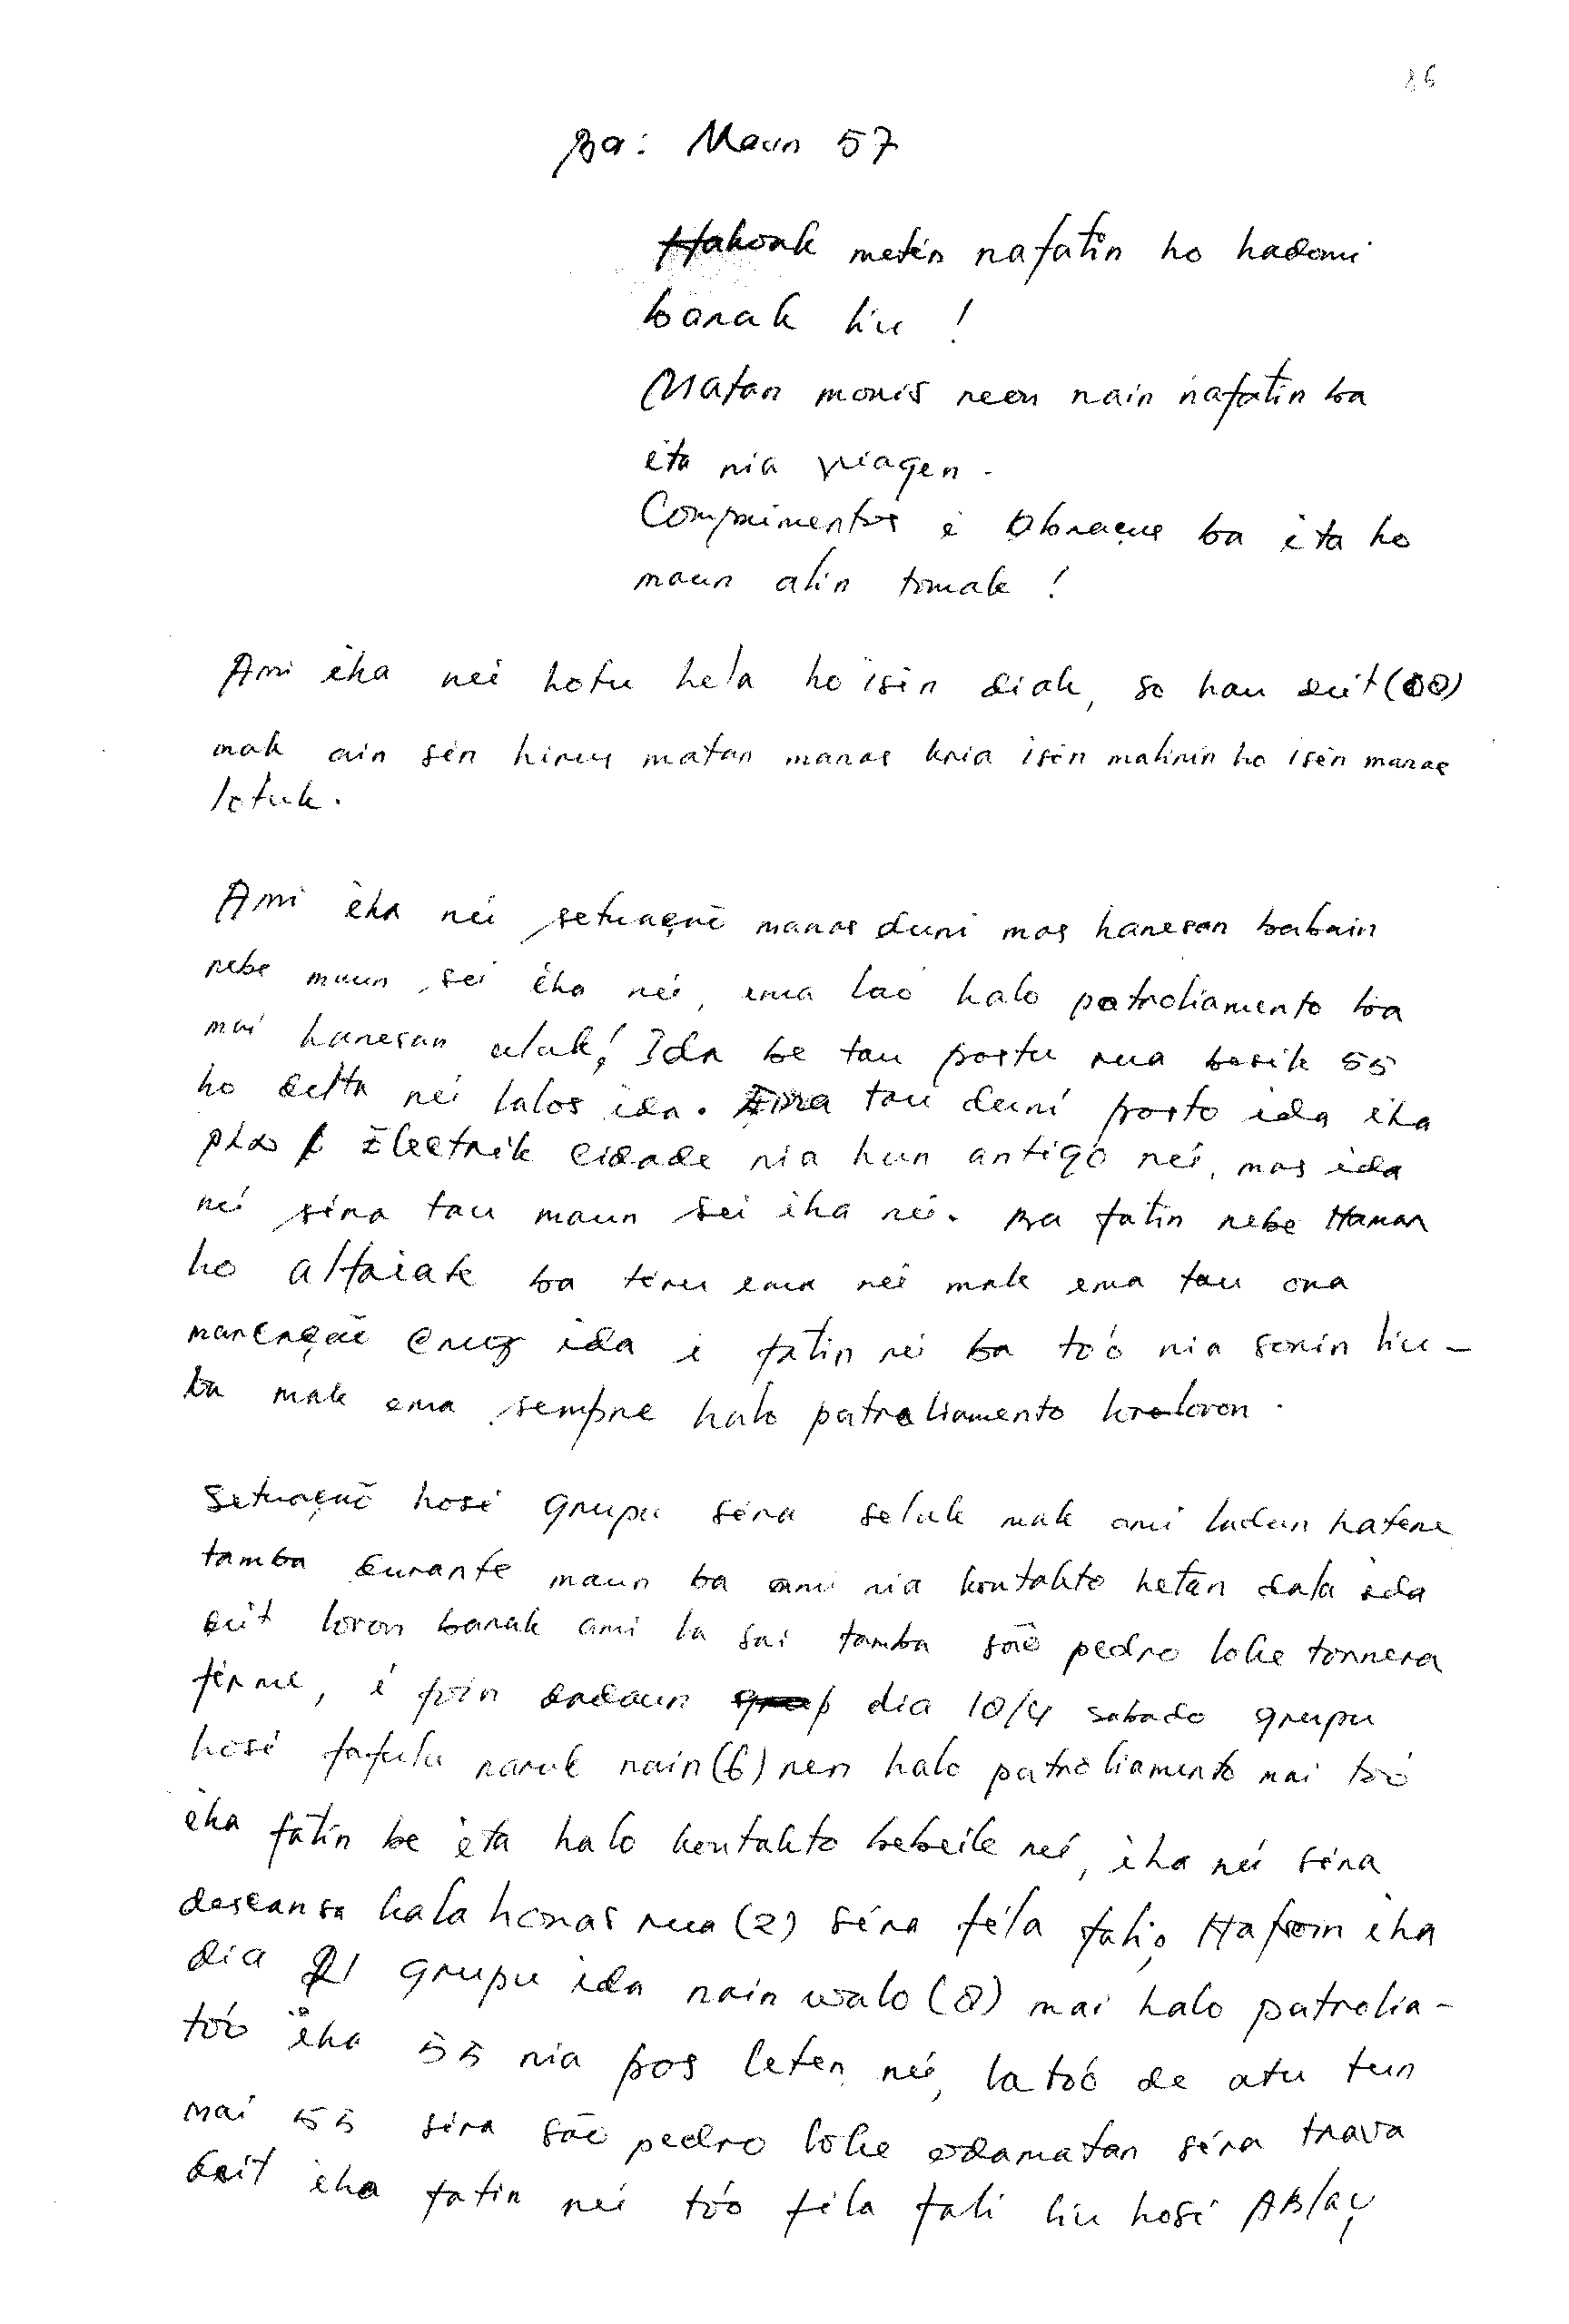 86
Ba: Maun 57
Hakoak metin nafatin ho hadomi
barak liu !
Matan moris neon nain nafatin ba
ita nia viagen.
Comprimentos i Abraços ba ita ho
maun alin tomak !
Ami iha nei hotu hela ho isin diak, so hau deit (00)
mak ain sin hirus matan manas kria isin malirin ho isin manas
lotuk.
Ami iha nei situação manas duni mas hanesan babain
nebe maun sei iha nei, ema lao halo patroliamento ba
mai hanesan uluk! Ida be tau postu rua besik 55
ho delta nei lalos ida. Sira tau duni posto ida iha
Electrik cidade nia hun antigo nei, mas ida
nei sira tau maun sei iha nei. Ba fatin nebe Maman
ho altaiak ba tiru ema nei mak ema tau ona
marcação cruz ida i fatin nei ba tóo nia sorin liu-
ba mak ema sempre halo patroliamento loroloron.
Situação hosi grupu sira seluk mak ami ladun hatene
tamba durante maun ba ami nia kontakto hetan dala ida
deit loron barak ami la sai tamba são pedro loke tornera
firme, i foin dadaun dia 10/4 sabado grupu
hosi fafulu naruk nain (6) nen halo patroliamento mai tóo
iha fatin be ita halo kontakto bebeik nei, iha nei sira
descansa kala horas rua (2) sira fila fali, Hafoin iha
dia 21 grupu ida nain walo (8) mai halo patrolia-
tóo iha 55 nia pos leten nei, la tóo de atu tun
mai 55 sira são pedro loke odamatan sira trava
deit iha fatin nei tóo fila fali liu hosi ABlaç